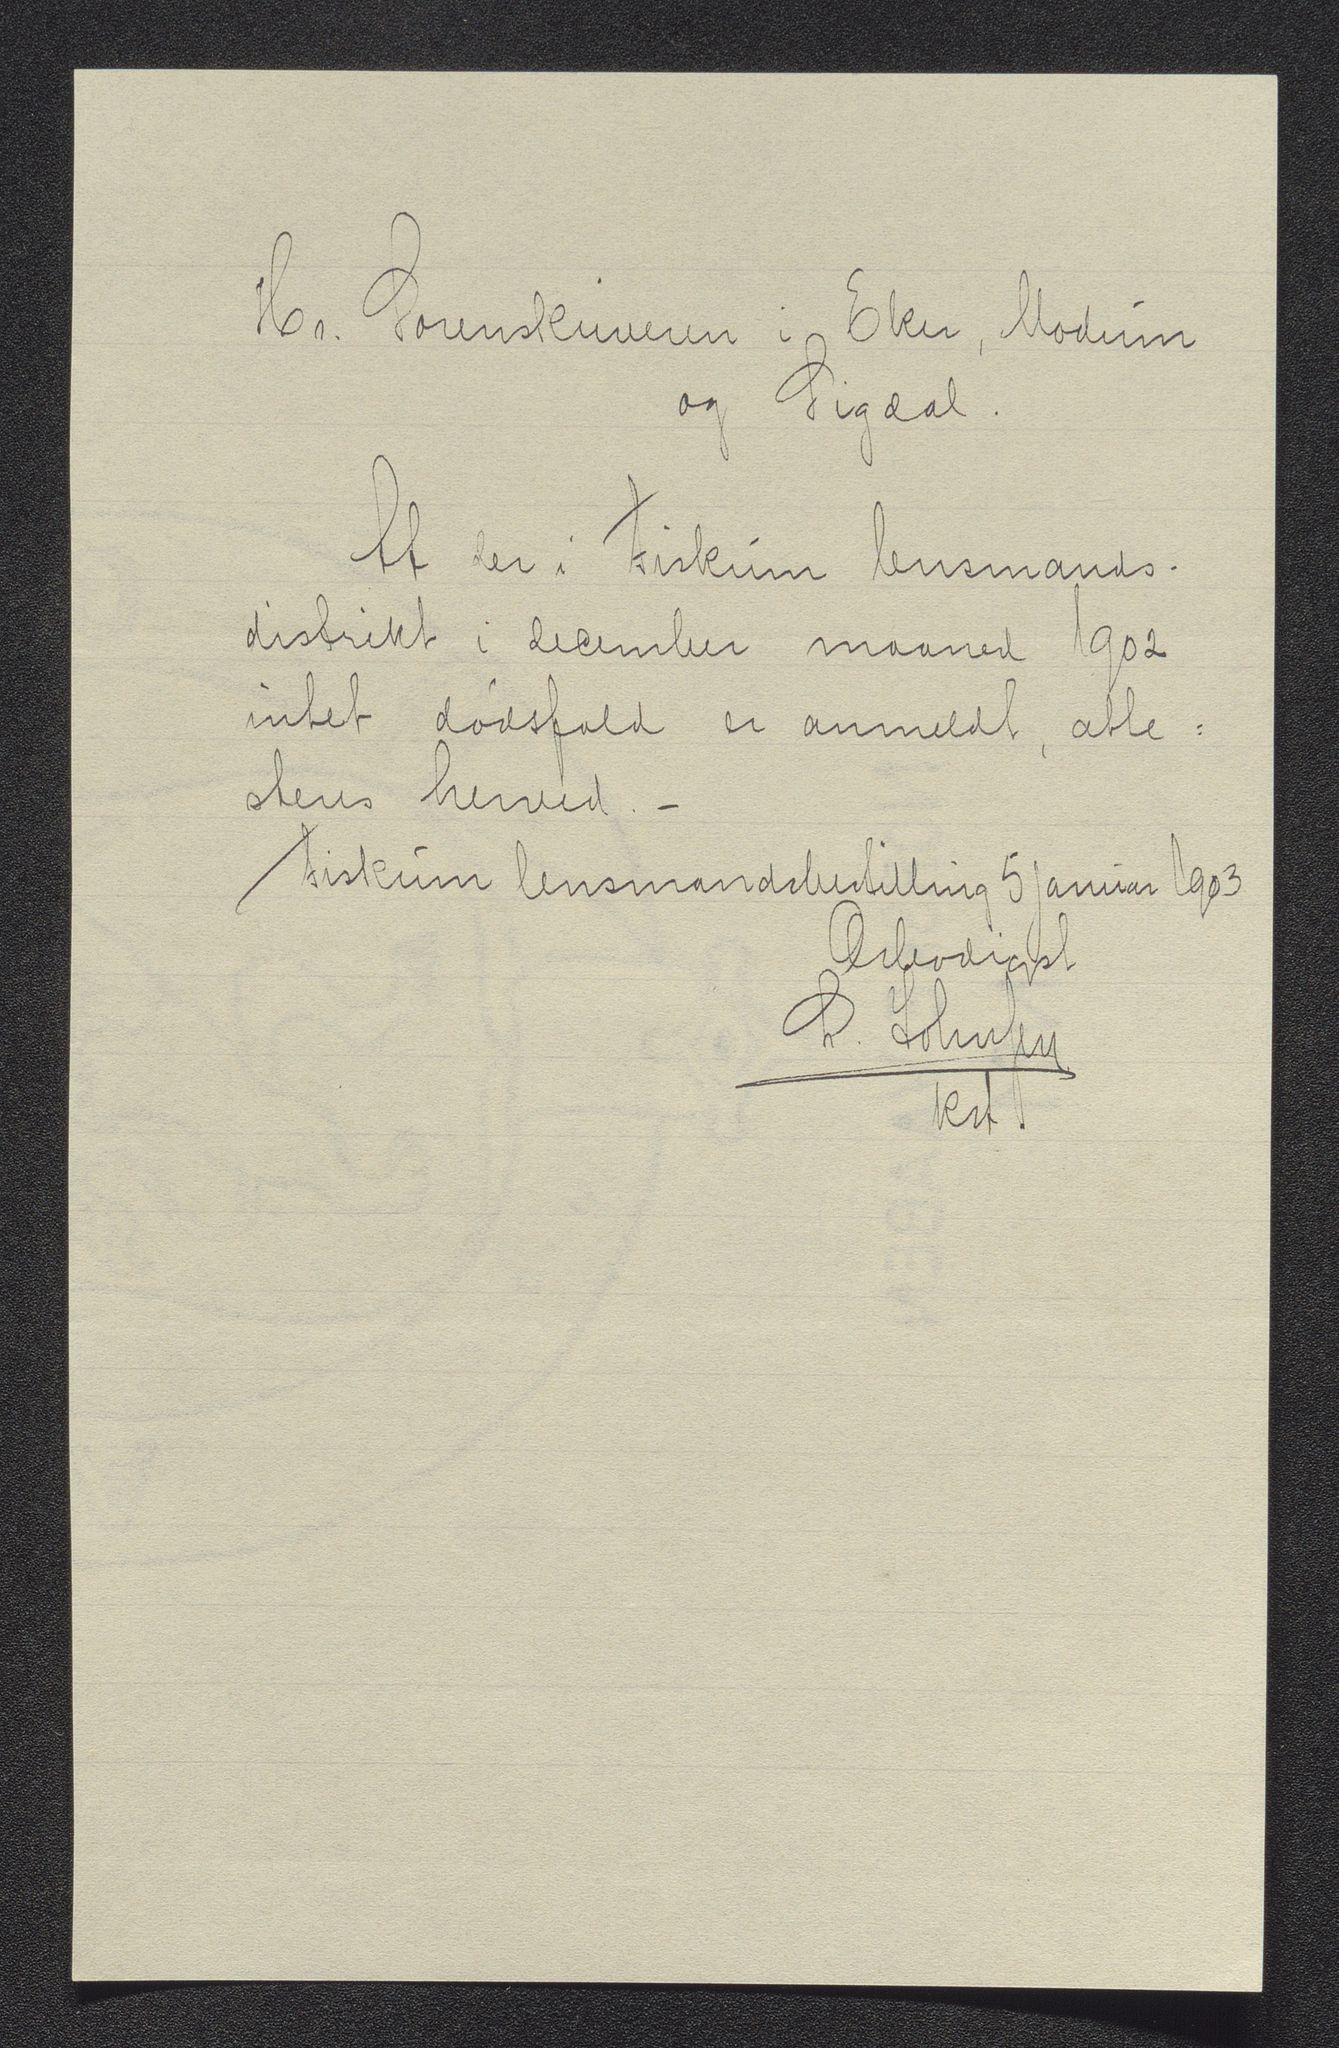 Hr. Sorenskriveren i Eker, Modum
og Sigdal.
At der i Fiskum lensmands-
distrikt i december maaned 1902
intet dødsfald er anmeldt, atte=
steres herved. -
Fiskum lensmandsbestilling 5 januar 1903
Ærbødigst
kst.